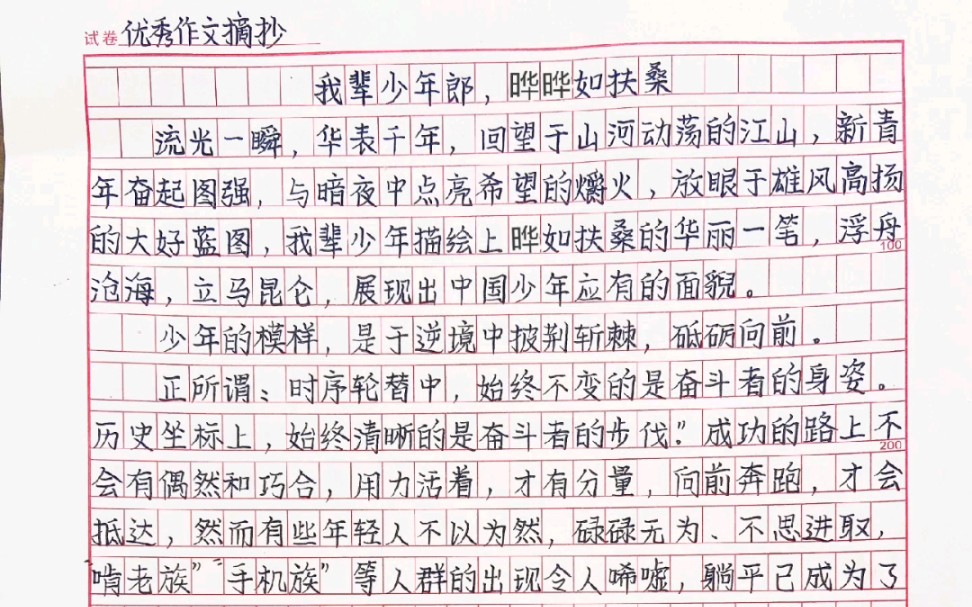 试卷 优秀作文摘抄
我辈少年郎，晔晔如扶桑
流光一瞬，华表千年，回望于山河动荡的江山，新青
年奋起图强，与暗夜中点亮希望的爝火，放眼于雄风高扬
的大好蓝图，我辈少年描绘上晔如扶桑的华丽一笔，浮舟
100
沧海，立马昆仑，展现出中国少年应有的面貌。
少年的模样，是于逆境中披荆斩棘，砥砺向前。
正所谓：时序轮替中，始终不变的是奋斗者的身姿。
历史坐标上，始终清晰的是奋斗者的步伐”。成功的路上不
200
会有偶然和巧合，用力活着，才有分量，向前奔跑，才会
抵达，然而有些年轻人不以为然，碌碌无为、不思进取，
“啃老族”“手机族”等人群的出现令人唏嘘，躺平已成为了